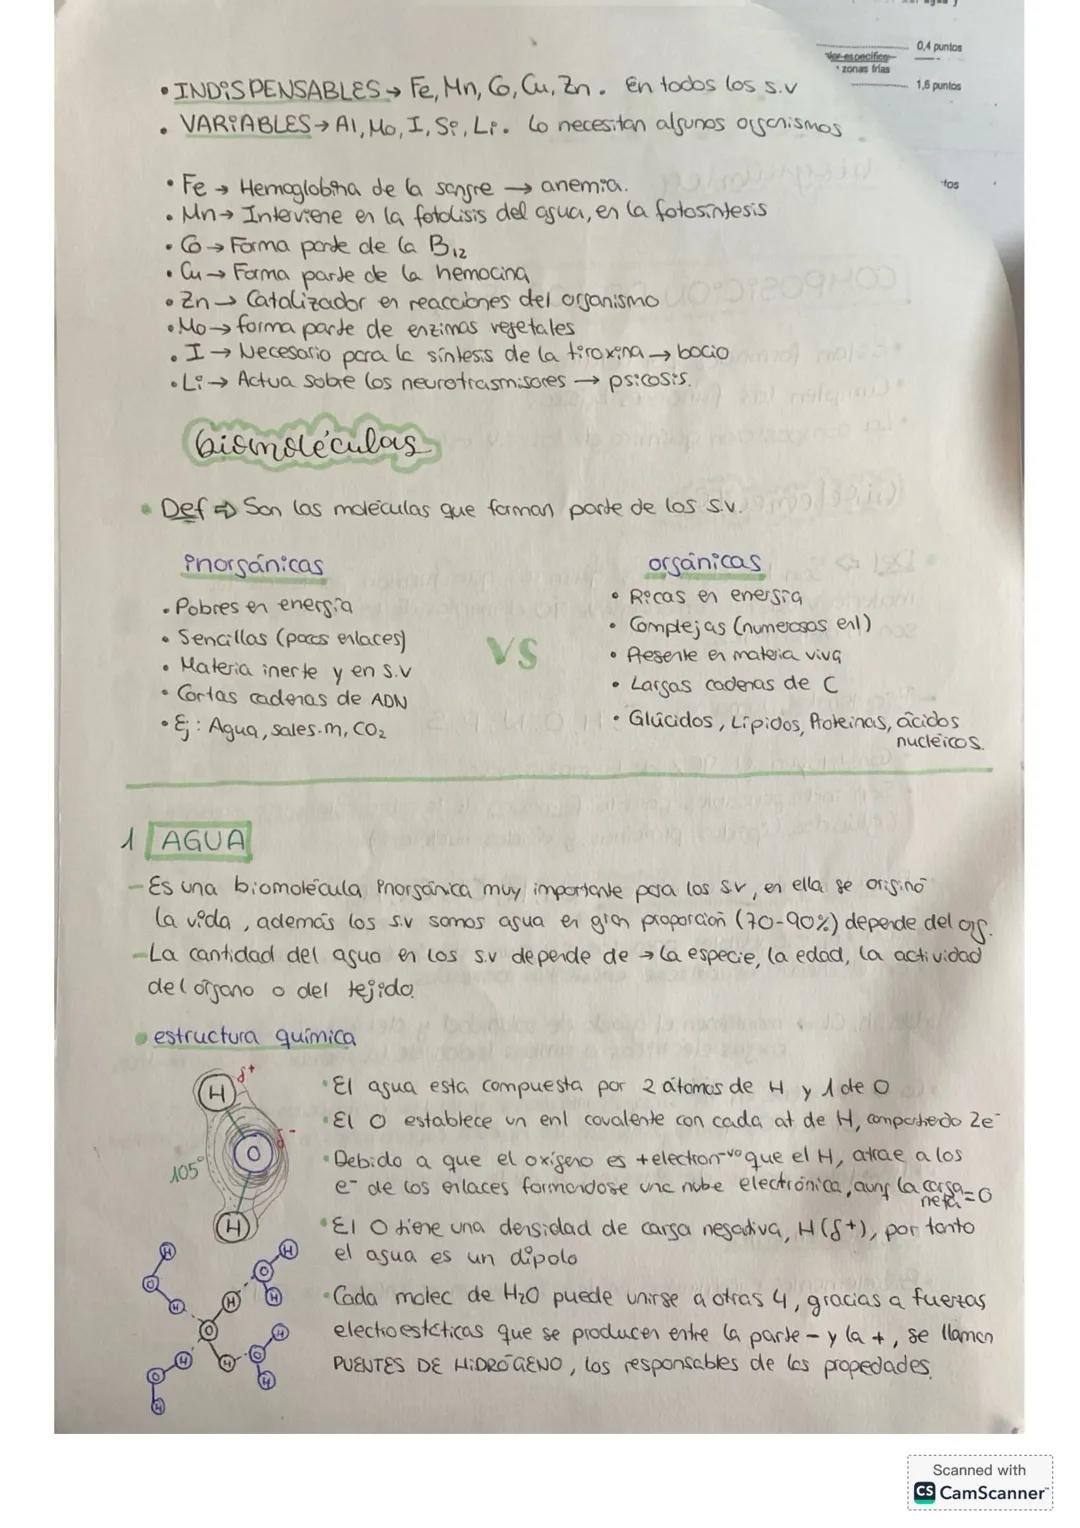 0,4 puntos
zonas frías
1,6 puntos
• INDISPENSABLES → Fe, Mn, Co, Cu, Zn. En todos los s.v
• VARIABLES → Al, Mo, I, Si, Li. Lo necesitan algunos organismos
• Fe → Hemoglobina de la sangre → anemia.
• Mn → Interviene en la fotolisis del agua, en la fotosíntesis
• Co → Forma parte de la B12
• Cu → Forma parte de la hemocina
• Zn → Catalizador en reacciones del organismo
• Mo → forma parte de enzimas vegetales
• I → Necesario para la síntesis de la tiroxina → bocio
• Li → Actua sobre los neurotrasmisores → psicosis.
biomoléculas
• Def ⇒ Son las moléculas que forman parte de los s.v.
inorgánicas
• Pobres en energía
• Sencillas (pocos enlaces)
• Materia inerte y en s.v
• Cortas cadenas de ADN
• Ej: Agua, sales.m, CO2
VS
orgánicas
• Ricas en energía
• Complejas (numerosos enl)
• Presente en materia viva
• Largas cadenas de C
• Glúcidos, Lípidos, Proteinas, ácidos
nucleicos.
1 AGUA
- Es una biomolécula inorgánica muy importante para los s.v, en ella se originó
la vida, además los s.v somos agua en gran proporción (70-90%) depende del org.
- La cantidad del agua en los s.v depende de → la especie, la edad, la actividad
del órgano o del tejido.
• estructura química
H δ+
O δ-
105°
H
• El agua esta compuesta por 2 átomos de H y 1 de O
• El O establece un enl covalente con cada at de H, compartiendo 2e-
• Debido a que el oxígeno es +electron-vo que el H, atrae a los
e- de los enlaces formandose una nube electrónica, aunq la carga
neta = 0
• El O tiene una densidad de carga negativa, H (δ+), por tanto
el agua es un dipolo
• Cada molec de H2O puede unirse a otras 4, gracias a fuerzas
electroestáticas que se producen entre la parte - y la +, se llaman
PUENTES DE HIDRÓGENO, los responsables de las propedades.
H O H
H O H
H O H
H O H
H O H
Scanned with
CS CamScanner